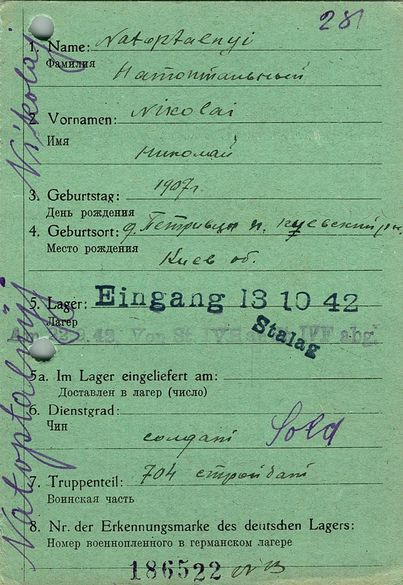 28
1. Name: Natoptalnyi
Фамилия
Натоптальный
2. Vornamen: Nikolai
Имя
Николай
3. Geburtstag: 1907г.
День рождения
4. Geburtsort: д. Петривцы
Место рождения
Киев об.
5. Lager: Eingang 13 10 42
Лагер
Stalag
5a. Im Lager eingeliefert am:
Доставлен в лагер (число)
6. Dienstgrad:
Чин
солдат Sold
7. Truppenteil: 704 стройбат
Воинская часть
8. Nr. der Erkennungsmarke des deutschen Lagers:
Номер военнопленного в германском лагере
186522
Natoptalnyj Nikolaj